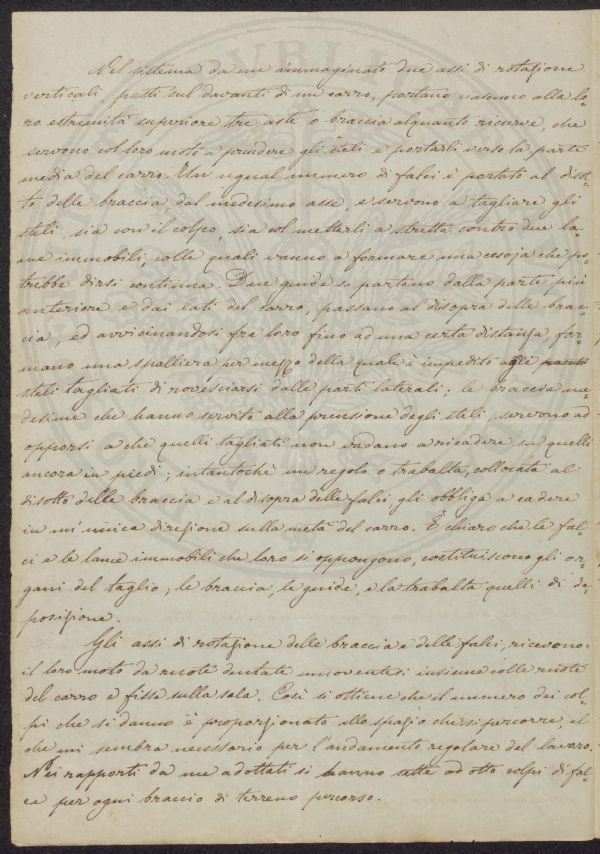 Nel sistema da me immaginato due assi di rotazione
verticali posti sul davanti di un carro, portano ciascuno alla lo-
ro estremità superiore tre aste o braccia alquanto ricurve, che
servono col loro moto a prendere gli steli e portarli verso la parte
media del carro. Un egual numero di falci è portato al disot-
to delle braccia, dal medesimo asse, e servono a tagliare gli
steli, sia con il colpo, sia col metterli a stretta contro due la-
me immobili, colle quali vanno a formare una cesoja che po-
trebbe dirsi continua. Due guide si partono dalla parte più
anteriore e dai lati del carro, passano al disopra delle brac-
cia, ed avvicinandosi fra loro fino ad una certa distanza, for-
mano una spalliera per mezzo della quale è impedito agli
steli tagliati di rovesciarsi dalle parti laterali; le braccia me-
desime che hanno servito alla prensione degli steli, servono ad
opporsi a che quelli tagliati non vadano a ricadere su quelli
ancora in piedi; intantochè un regolo o trabalta, collocata al
disotto delle braccia e al disopra delle falci, gli obbliga a cadere
in un' unica direzione sulla metà del carro. È chiaro che le fal-
ci e le lame immobili che loro si oppongono, costituiscono gli or-
gani del taglio; le braccia, le guide, e la trabalta quelli di de-
posizione.
Gli assi di rotazione delle braccia e delle falci, ricevono
il loro moto da ruote dentate muoventesi insieme colle ruote
del carro e fisse sulla sala. Così si ottiene che il numero dei col-
pi che si danno è proporzionato allo spazio che si percorre, il
che mi sembra necessario per l'andamento regolare del lavoro.
Nei rapporti da me adottati si hanno sette ad otto colpi di fal-
ce per ogni braccio di terreno percorso.